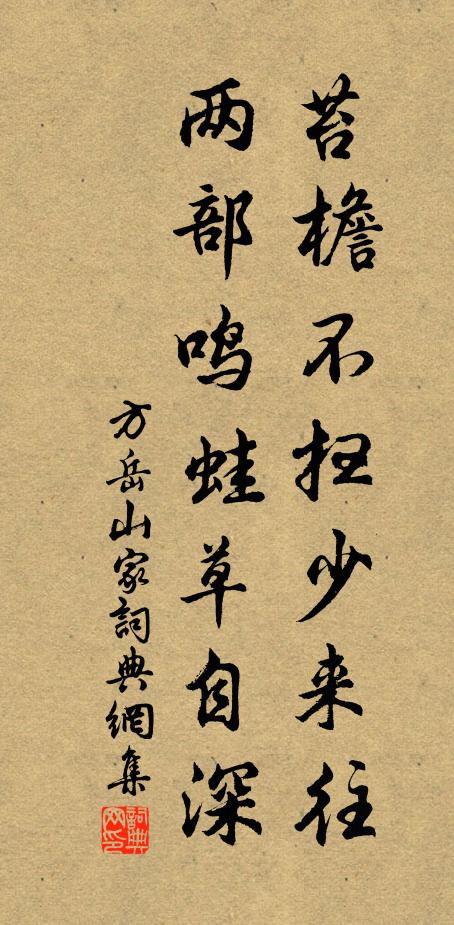 苔檐不扫少来往
两部鸣蛙草自深
方岳山家詞典網集
詞典网印